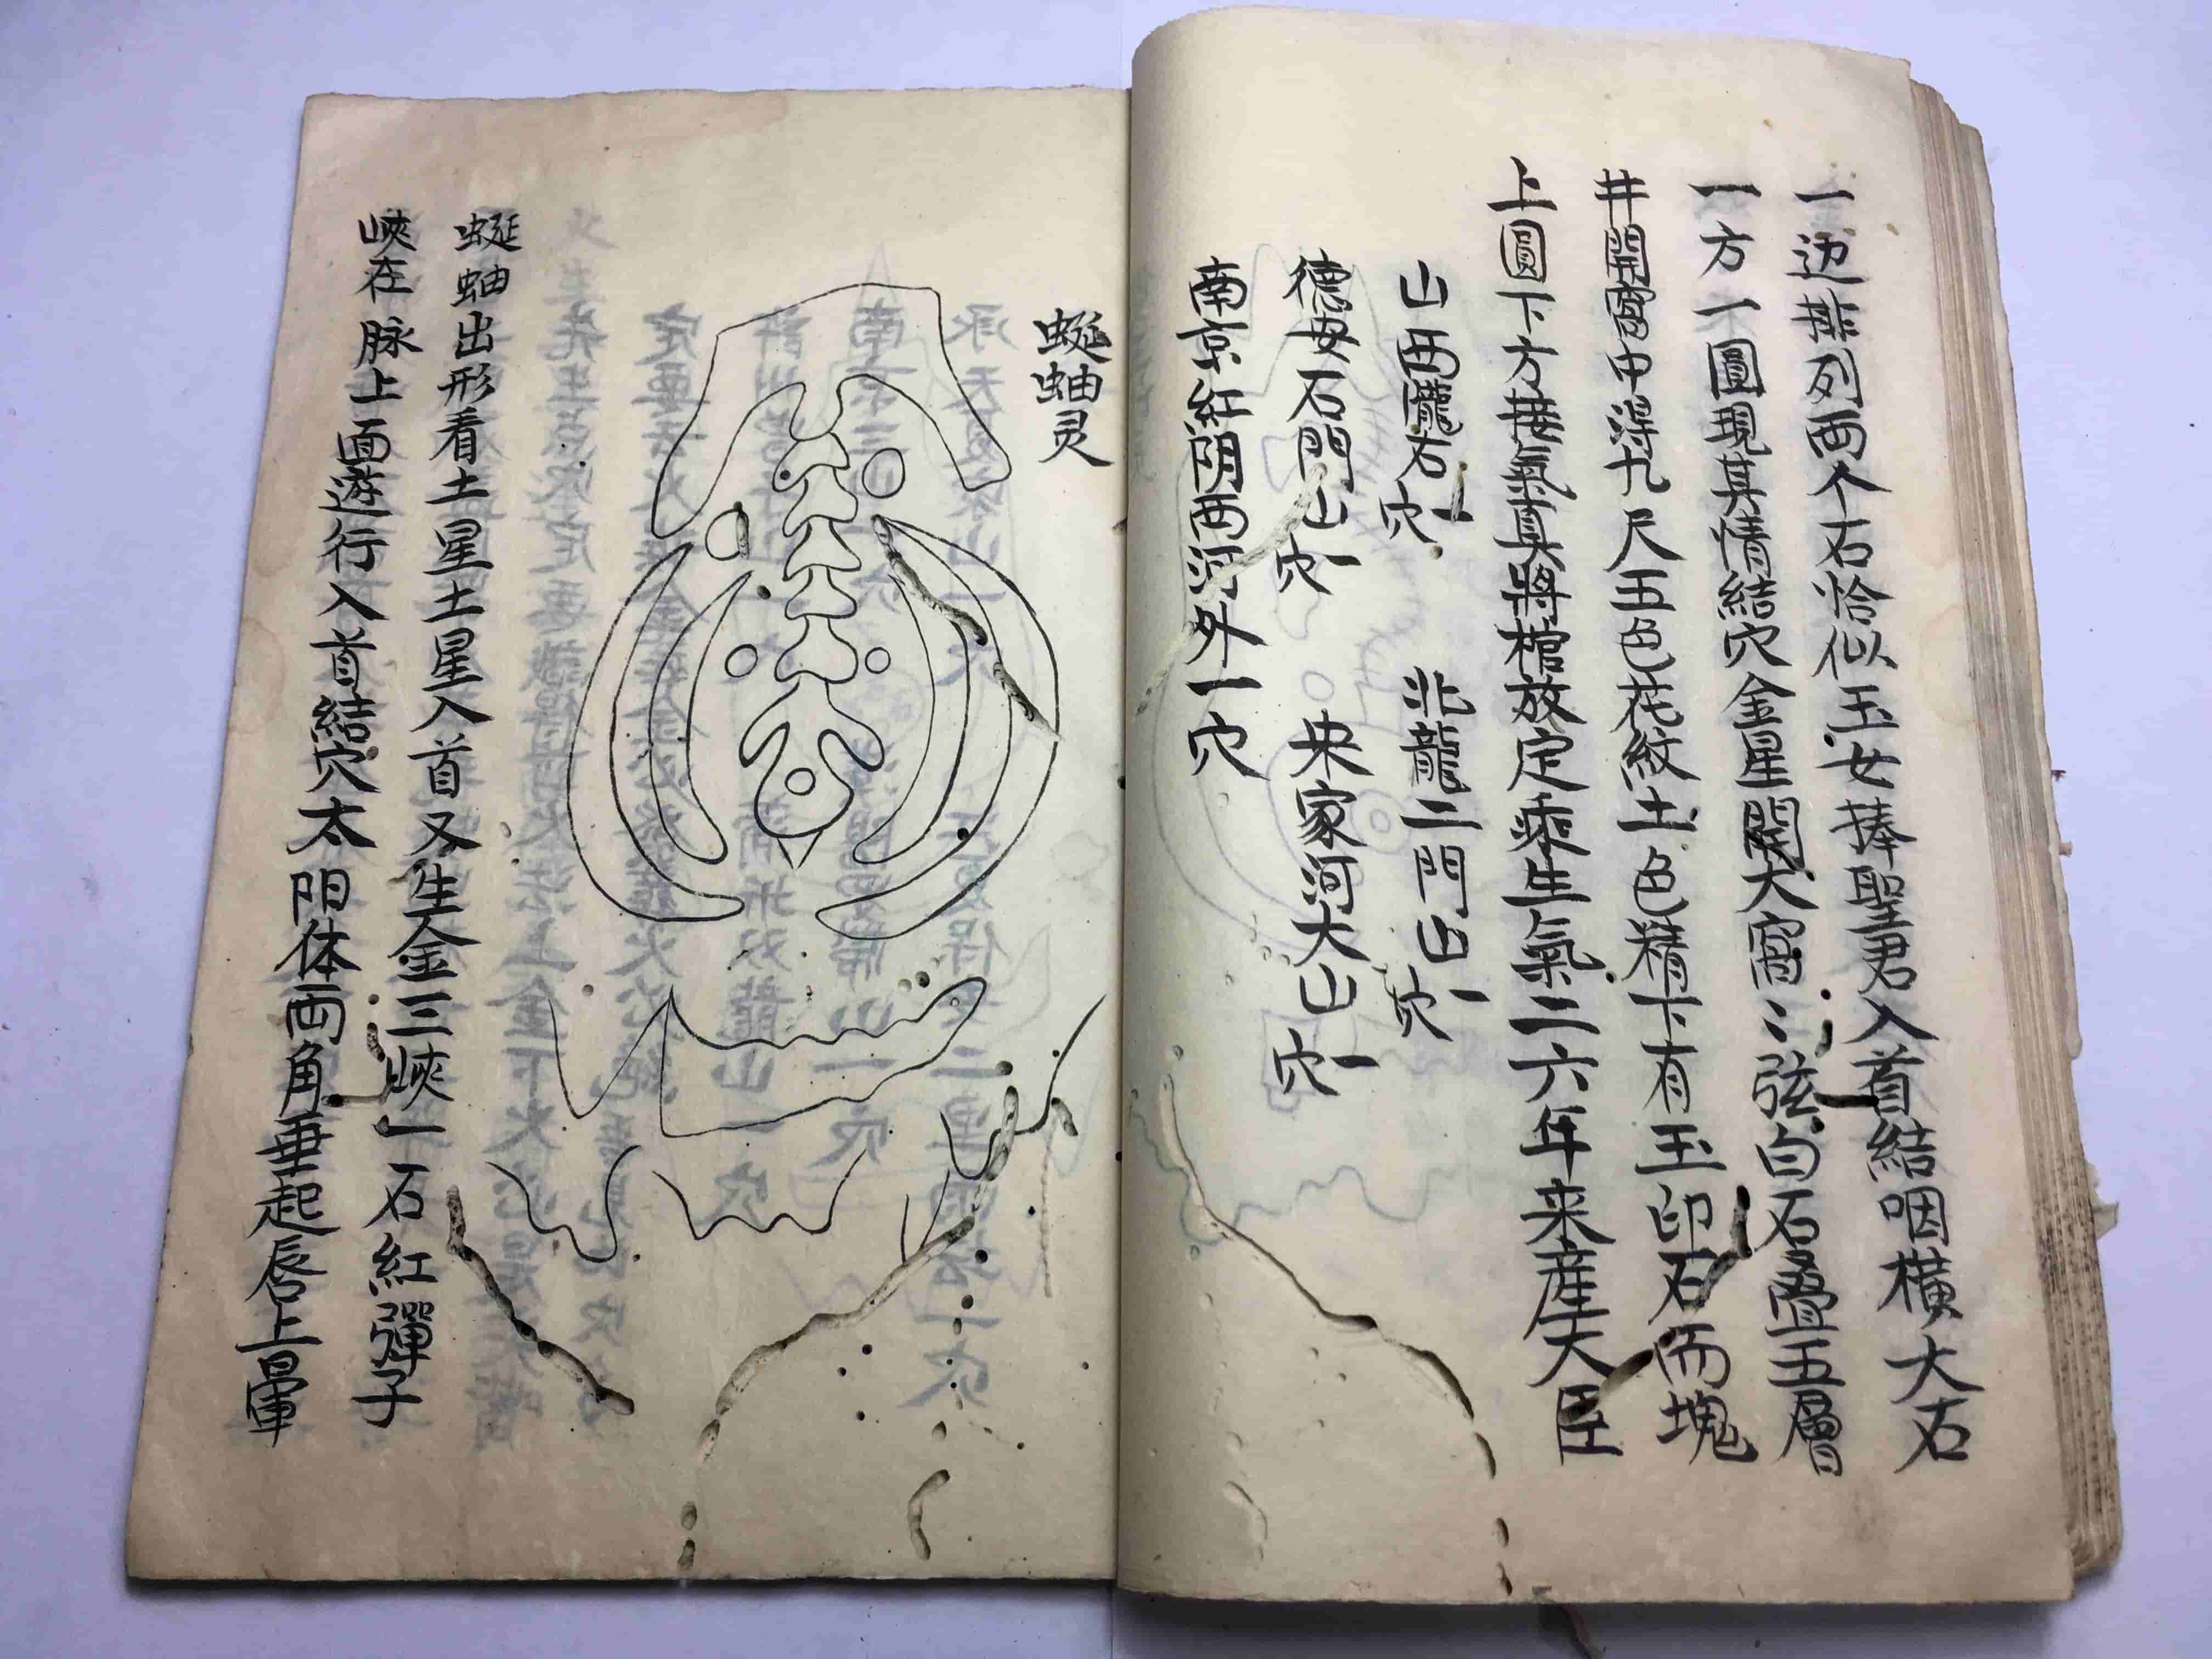 一边排列两个石恰似玉女捧聖君入首結咽橫大石
一方一圓現其情結穴金星開大窩二弦白石叠五層
井開窩中得九尺五色花紋土色精下有玉印石両塊
上圓下方接氣真將棺放定乘生氣二六年来產大臣
山西隴石一穴 北龍二門山一穴
德安石門山一穴 朱家河大山一穴
南京紅門西河外一穴
蜒蚰灵
蜒蚰出形看土星土星入首又生金三峽一石紅彈子
峽在脉上面遊行入首結穴太阳体両角垂起唇上軍